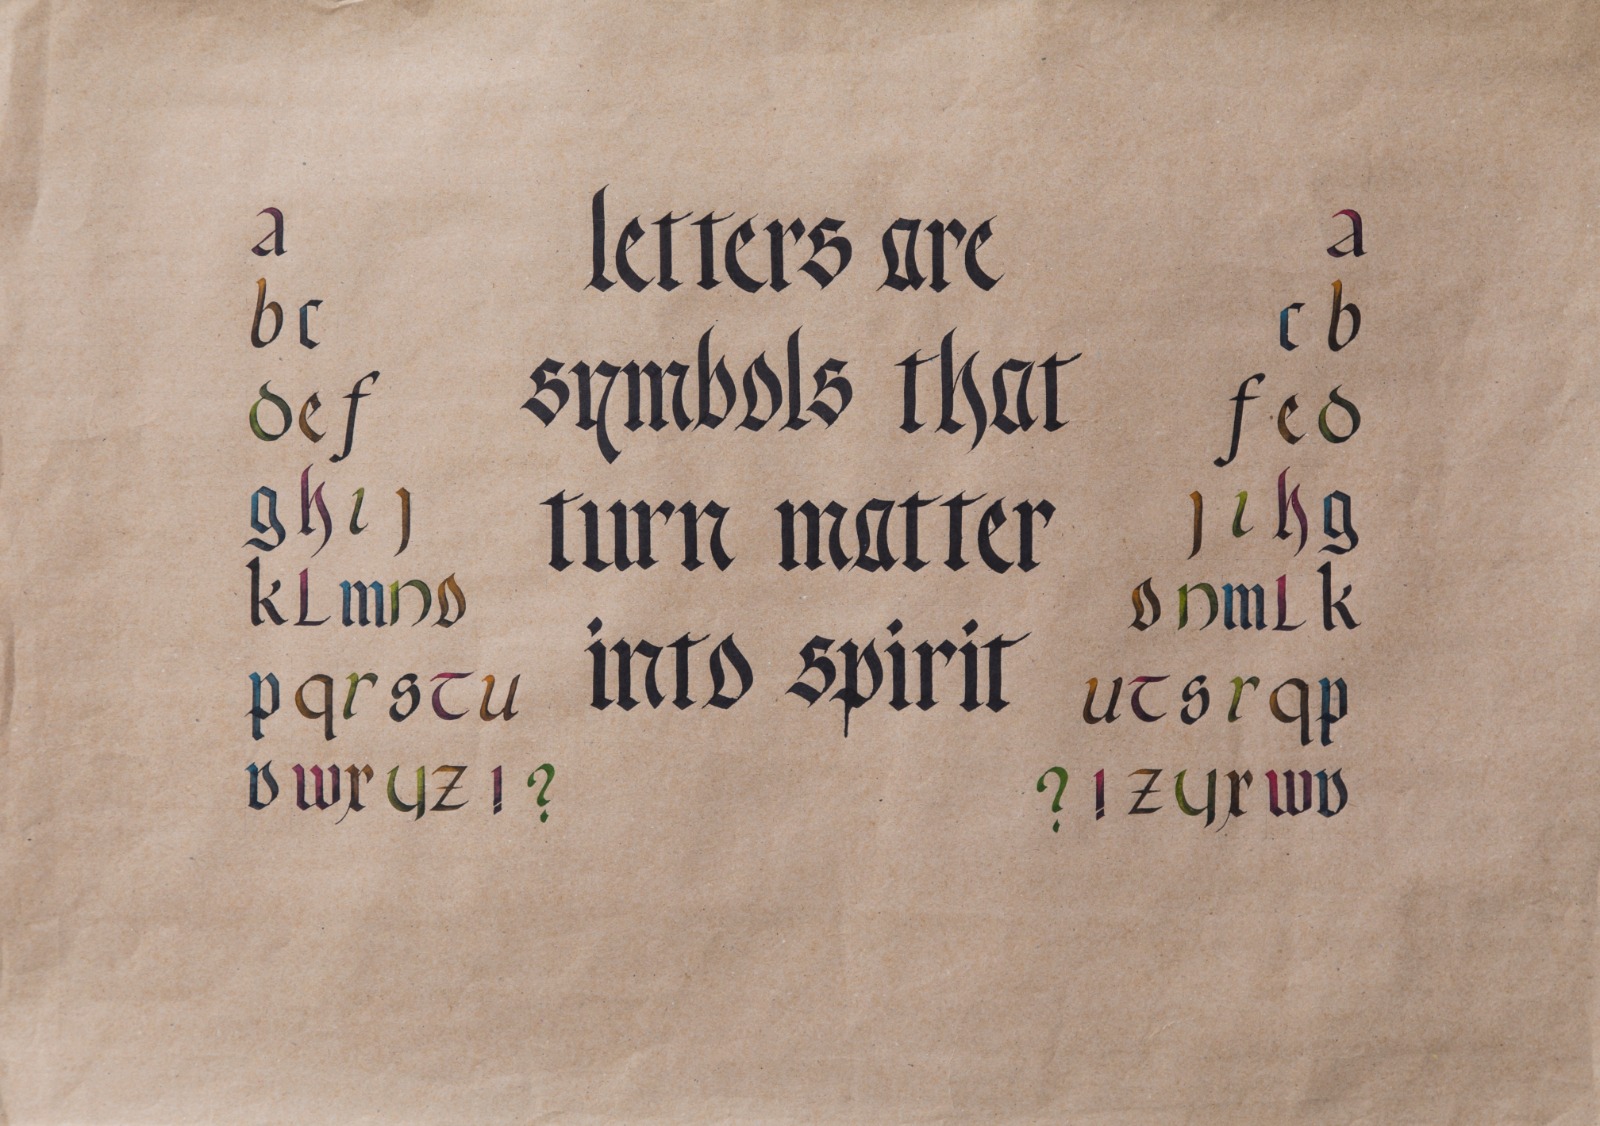 a
bc
def
ghıȷ
kLmno
pqrstu
vwxyz!?
letters are
symbols that
turn matter
into spirit
a
cb
fed
ȷıhg
onmLk
utsrqp
?!zyxwv